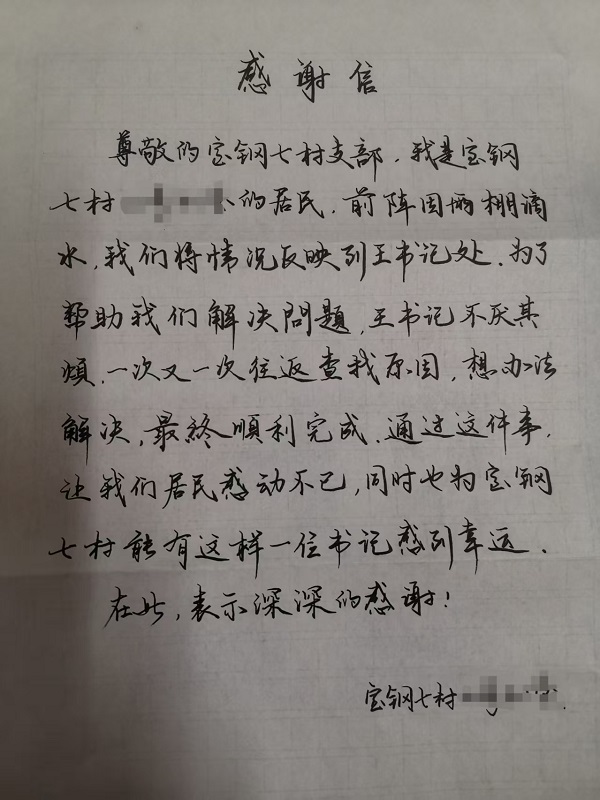 感谢信
尊敬的宝钢七村支部，我是宝钢
七村的居民，前阵因雨棚滴
水，我们将情况反映到王书记处、为了
帮助我们解决问题，王书记不厌其
烦，一次又一次往返查找原因，想办法
解决，最终顺利完成、通过这件事，
让我们居民感动不已，同时也为宝钢
七村能有这样一位书记感到幸运．
在此，表示深深的感谢！
宝钢七村